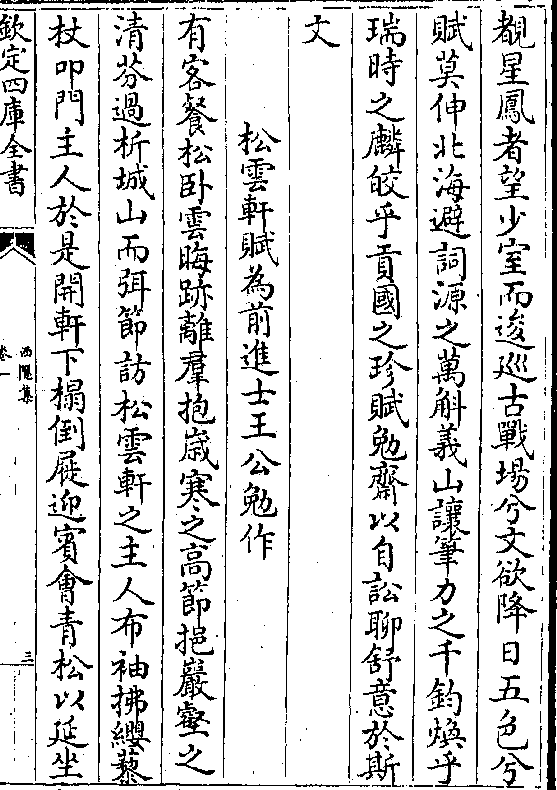 覩星鳳者望少室而逡廵古戰場兮文欲降日五色兮
賦莫伸北海避詞源之萬斛義山讓筆力之千鈞煥乎
瑞時之麟皎乎貢國之珍賦勉齋以自訟聊舒意於斯
文
松雲軒賦為前進士王公勉作
有客餐松卧雲晦跡離羣抱歲寒之高節挹巖壑之
清芬過析城山而弭節訪松雲軒之主人布袖拂纓藜
杖叩門主人於是開軒下榻倒屣迎賓會青松以延坐
欽定四庫全書
西隠集
卷一
三